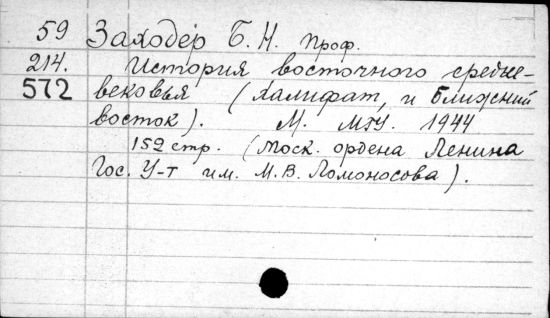 59 Заходер Б. Н. проф.
214. История восточного средне-
572 вековья (халифат, и Ближний
восток). М. МГУ. 1944
152 стр. (Моск. ордена Ленина
Гос. У-т им. М. В. Ломоносова).